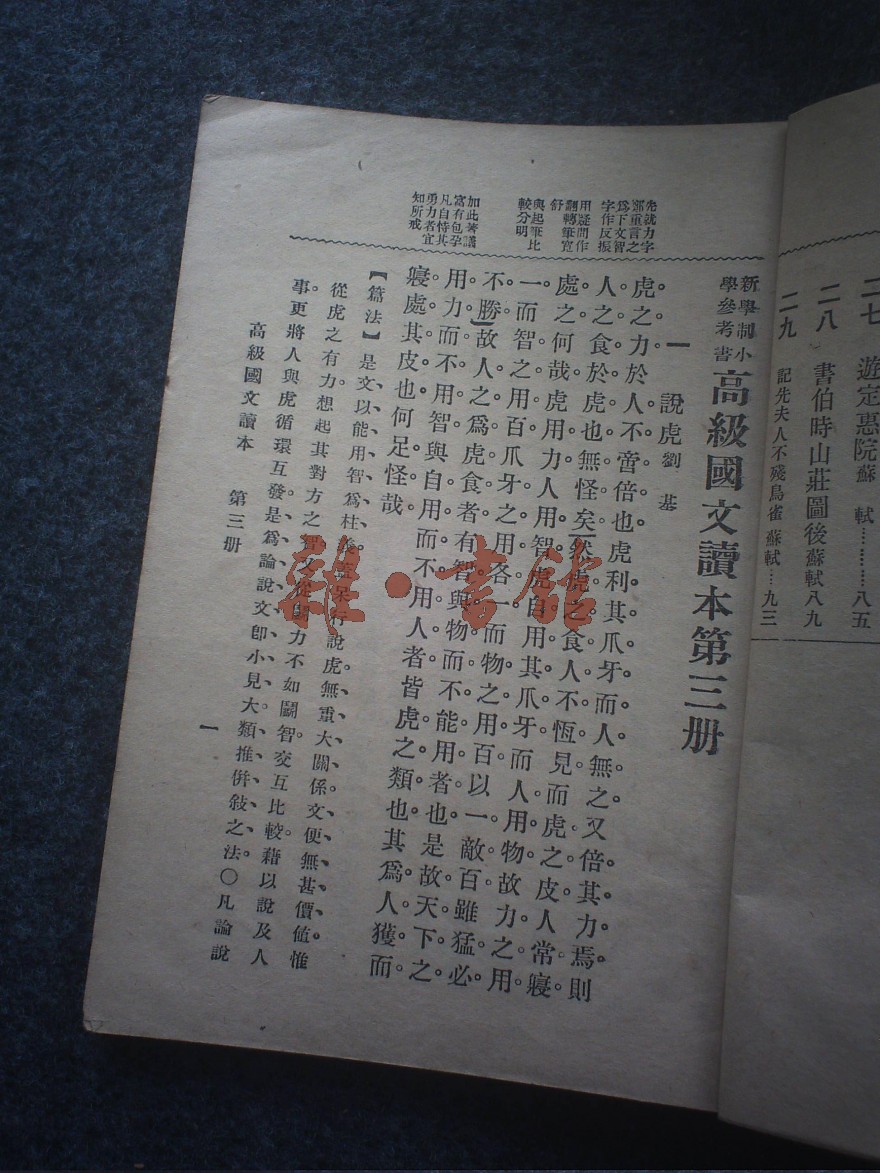 二七 遊定惠院 蘇軾…………八五
二八 書伯時山莊圖後 蘇軾 八九
二九 記先夫人不殘鳥雀 蘇軾…九三
新學制小學參考書 高級國文讀本第三册
一 說虎 劉基
先就力字
鄭重言之
爲下文智
字作反振
用疑問作
翻轉筆寬
舒
與起筆比
較分明
加此著議
富有包孕
凡自恃其
勇力者宜
知所戒
虎之力於人不啻倍也。虎利其爪牙而人無之。又倍其力焉。則
人之食於虎也無怪矣。然虎之食人不恆見。而虎之皮人常寢
處之何哉。虎用力人用智。虎自用其爪牙而人用物。故力之用
一而智之用百。爪牙之用各一。而物之用百。以一敵百。雖猛必
不勝。故人之爲虎食者。有智與物而不能用者也。是故天下之
用力而不用智。與自用而不用人者。皆虎之類也。其爲人獲而
寢處其皮也何足怪哉。
【篇法】是文以能用智爲柱 說虎、無重大關係、文便無甚價値、惟
從虎之有力。想起其對方之智。又從 力不如鬭智。交互比較。藉以說及人
事。更將人與虎循環互發。是爲論說文卽小見大、類推倂敍之法。〇凡論說
高級國文讀本 第三册
一
雜·書館